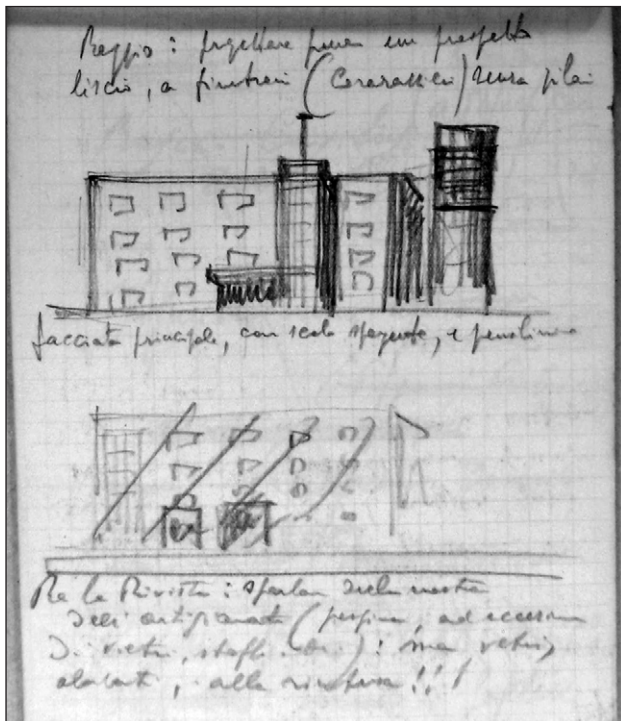 Reggio: progettare un prospetto
liscio, a finestroni ( ) senza
facciata principale, con scala sporgente, e pensilina
Per la Rivista: sparlar della mostra
dell'artigianato ( ad eccezion
di vetri, stoffe ): ma vetri,
alla rinfusa!!!